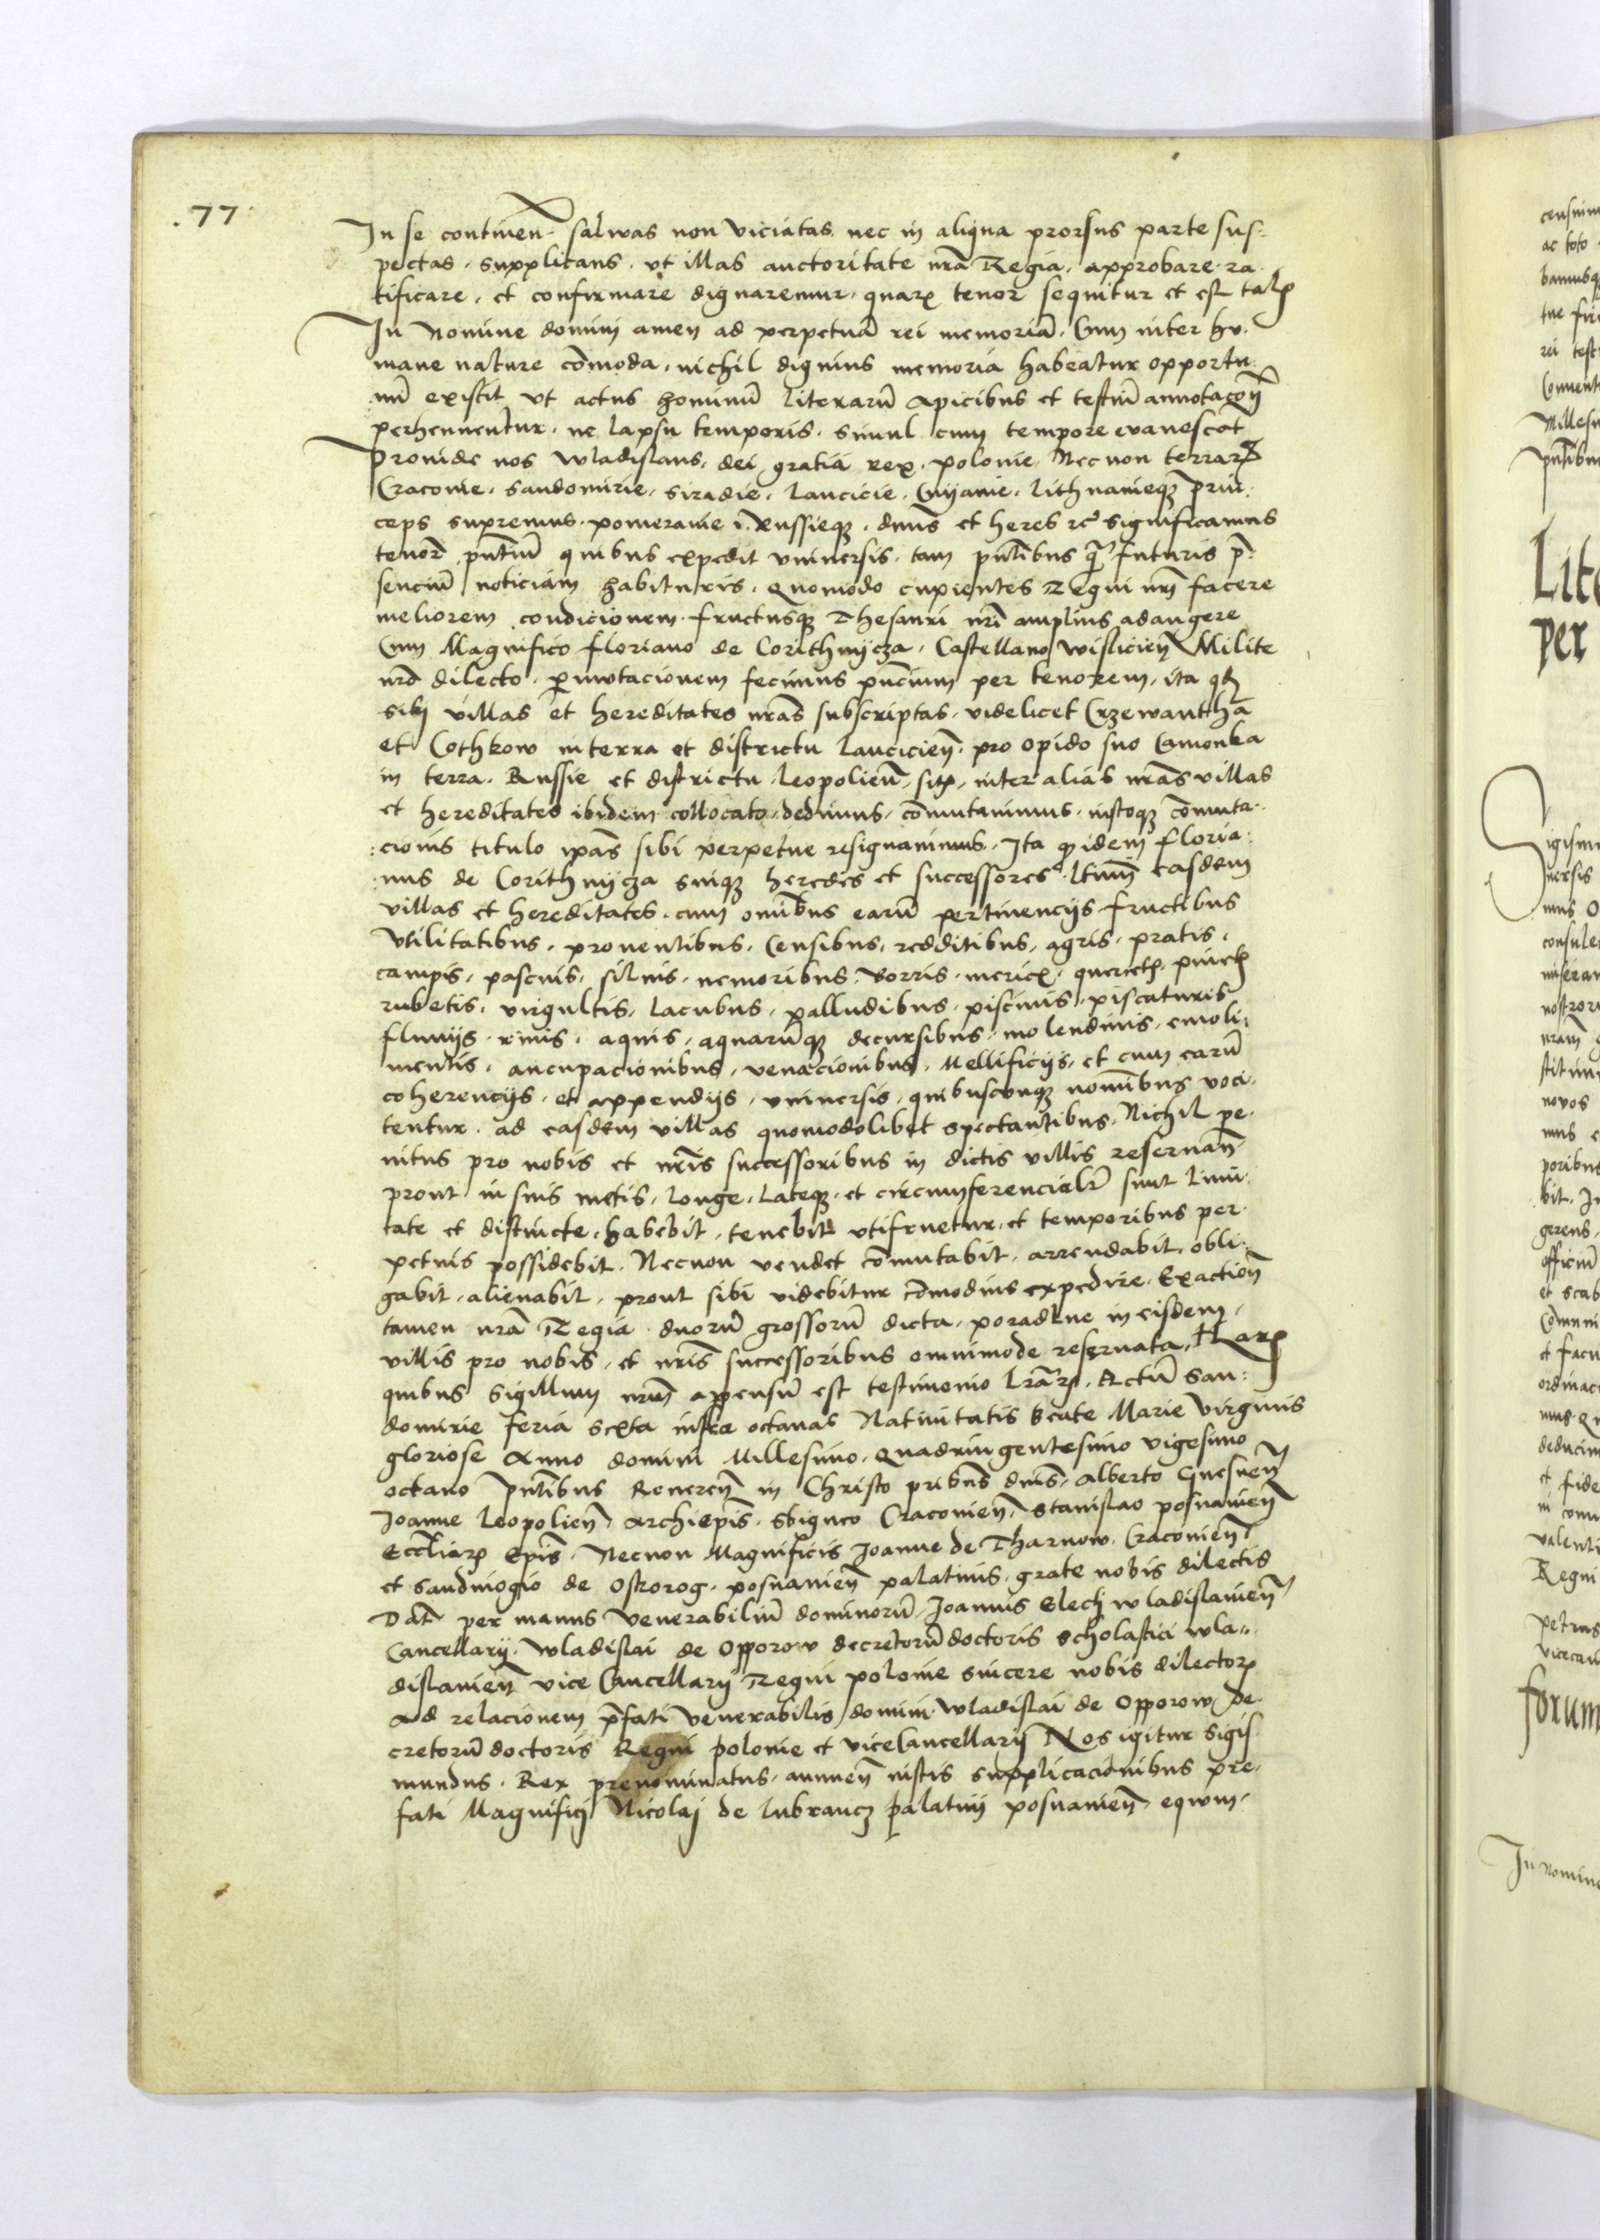 77
In se continen̄. salwas non viciatas. nec in aliqua prorsus parte sus-
pectas. supplicans. vt illas auctoritate nrā Regia. approbare. ra-
tificare. et confirmare dignaremur. quarꝝ tenor sequitur et est talis
In Nomine domini amen ad perpetuā rei memoriā. Cum inter hu-
mane nature cōmoda. nichil dignius memoria habeatur opportu-
nū existit vt actus hominū literarū apicibus et testiū annotacōn̄
perhennentur. ne lapsu temporis. simul cum tempore evanescat
Proinde nos Wladislaus. dei gratia rex. polonie. Necnon terrarꝝ
Cracovie. Sandomirie. Siradie. Lancicie. Cuyavie. Lithuanieqꝫ prin-
ceps supremus. pomeranie. Russieqꝫ. dn̄us et heres rc̄ significamus
tenorē pn̄tiū quibus expedit vniversis. tam pn̄tibus q̄ futuris p̄-
senciū noticiam habituris. Quomodo cupientes Regni nrī facere
meliorem condicionem. fructusqꝫ Thesauri nrī amplius adaugere
Cum Magnifico floriano de Corithnycza. Castellano Wislicien̄ Milite
nrō dilecto. ꝑmutacionem fecimus pn̄cium per tenorem. ita qd
sibi villas et hereditates nrās subscriptas. videlicet Crzewantha
et Cothkow in terra et districtu lancicien̄. pro opido suo Camonka
in terra. Russie et districtu leopolien̄. sitꝭ. inter alias nrās villas
et hereditates ibidem collocato. dedimus. cōmutavimus. iustoqꝫ cōmuta-
cionis titulo ipās sibi perpetue resignavimus. Ita qꝫ idem floria-
nus de Corithnycza suiqꝫ heredes et successores ltimi easdem
villas et hereditates. cum omībus earū pertinencijs fructibus
vtilitatibus. proventibus. Censibus. redditibus. agris. pratis.
campis. pascuis. silvis. nemoribus. borris. mericꝭ. quercetꝭ. pinetꝭ
rubetis. virgultis. lacubus. palludibus. piscinis. piscaturis
fluvijs. rivis. aquis. aquarūqꝫ decursibus. molendinis. emoli-
mentis. aucupacionibus. venacionibus. Mellificijs. et cum earū
coherencijs. et appendijs. vniversis. quibuscunqꝫ nomībus voci-
tentur. ad easdem villas quomodolibet spectantibus. Nichil pe-
nitus pro nobis et nrīs successoribus in dictis villis reservan̄
prout in suis metis. longe. lateqꝫ. et circumferencialr̄ sunt limi-
tate et distincte. habebit. tenebit vtifruetur. et temporibus per-
petuis possidebit. Necnon vendet cōmutabit. arrendabit. obli-
gabit. alienabit. prout sibi videbitur cōmodius expedire. Exaction̄
tamen nrā Regia duorū grossorū dicta. poradlne in eisdem.
villis pro nobis. et nrīs successoribus omnimode reservata. Harꝝ
quibus Sigillum nrūm appensū est testimonio lrārꝝ. Actū San-
domirie feria sexta infra octavas Nativitatis beate Marie virginis
gloriose Anno domini Millesimo. Quadringentesimo vigesimo
octavo pn̄tibus Reveren̄ in Christo prībus dn̄is. Alberto Gnesnen̄
Joanne leopolien̄ Archiep̄is. Sbigneo Cracovien̄. Stanislao posnanien̄
Eccliarꝝ Ep̄is. Necnon Magnificis Joanne de Tharnow. Cracovien̄
et Sandivogio de Ostrorog. posnanien̄ palatinis. grate nobis dilectis
Dat̄ per manus venerabiliū dominorū. Joannis Electi wladislavien̄
Cancellarij. Wladislai de Opporow decretorū doctoris Scholastici wla-
dislavien̄ vice Cancellarij Regni polonie sincere nobis dilectorꝝ
Ad relacionem p̄fati Venerabilis domini Wladislai de Opporow De-
cretorū doctoris Regni polonie et viceCancellarij Nos igitur Sigis-
mundus. Rex prenominatus. annuen̄ iustis supplicacionibus pre-
fati Magnifici Nicolaj de lubrancz palatini posnanien̄ equum.